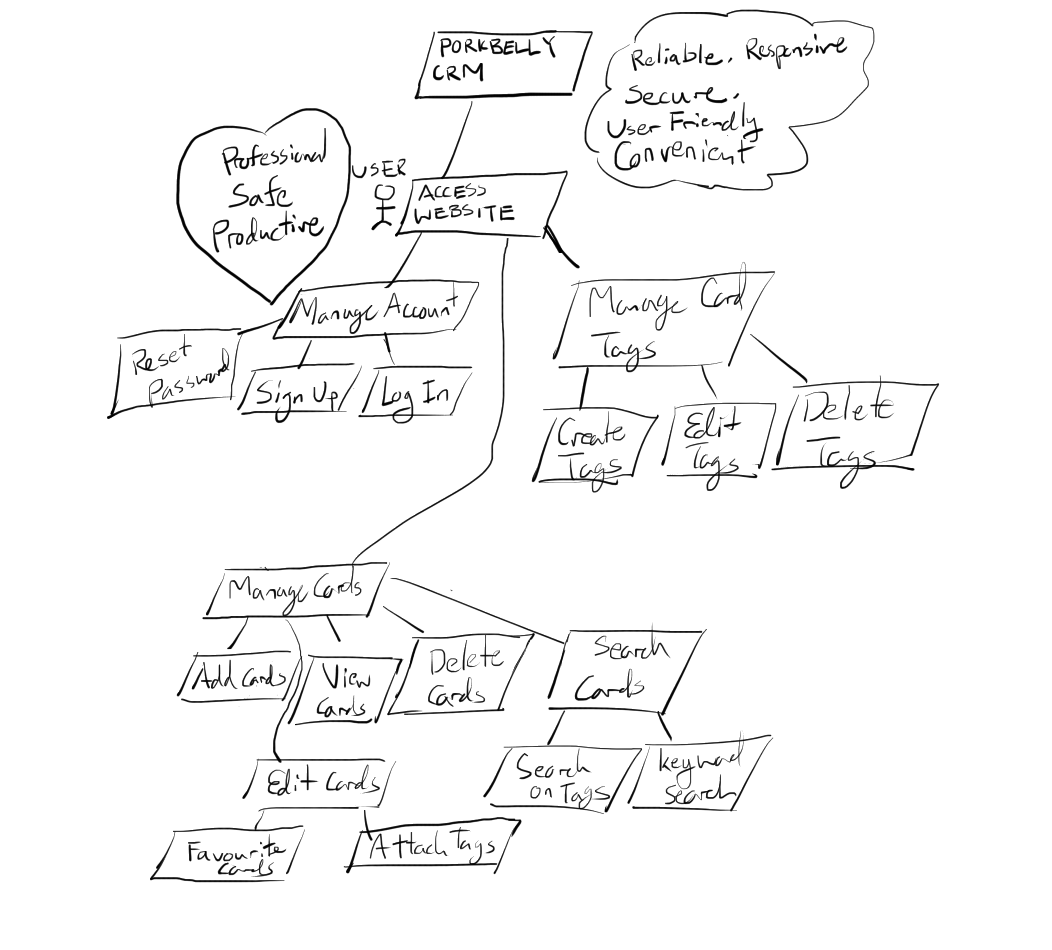 PORKBELLY
CRM
Reliable, Responsive
Secure,
User Friendly
Convenient
Professional
Safe
Productive
USER
ACCESS
WEBSITE
Manage Account
Reset
Password
Sign Up
Log In
Manage Card
Tags
Create
Tags
Edit
Tags
Delete
Tags
Manage Cards
Add Cards
View
Cards
Delete
Cards
Search
Cards
Edit Cards
Search
on Tags
keyword
search
Favourite
Cards
Attach Tags